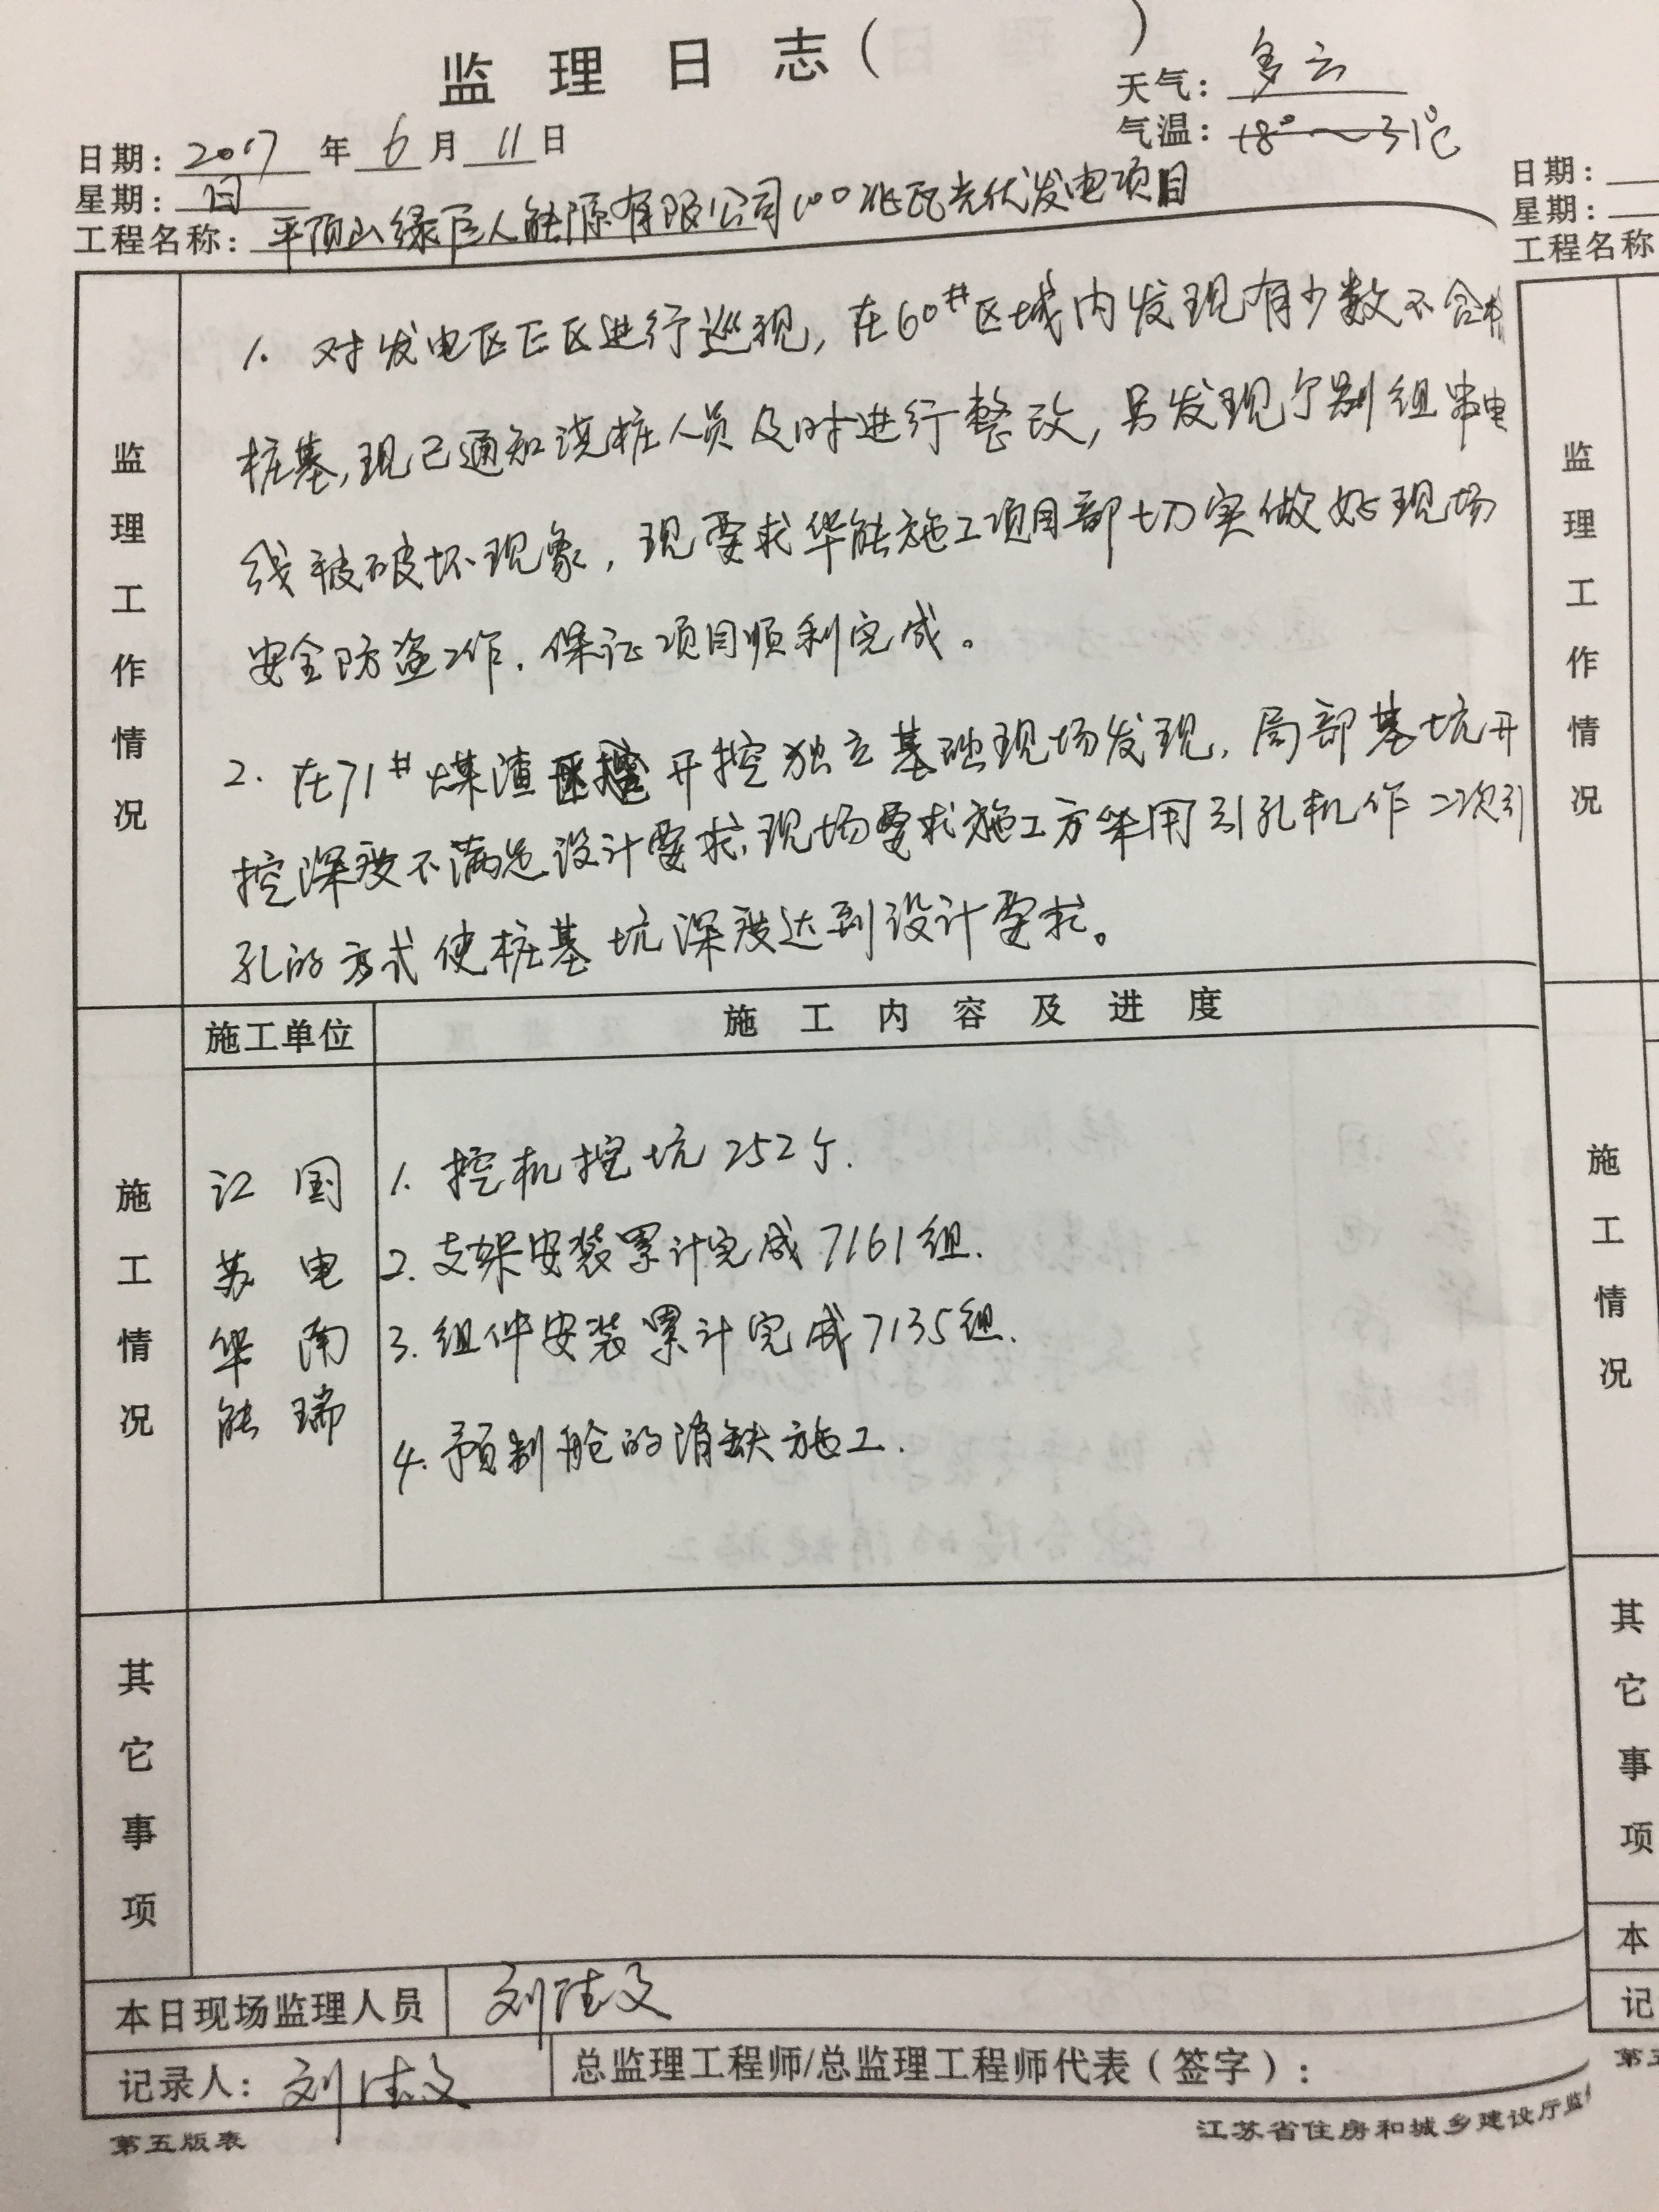 监理日志（ ）
天气：多云
气温：18°～31℃
日期：2017年6月11日
星期：日
工程名称：平顶山绿巨人能源有限公司100兆瓦光伏发电项目
监理工作情况
1. 对发电区E区进行巡视，在60#区域内发现有少数不合格
桩基，现已通知浇桩人员及时进行整改，另发现个别组串电
线被破坏现象，现要求华能施工项目部切实做好现场
安全防盗工作，保证项目顺利完成。
2. 在71#煤渣 开挖独立基础现场发现，局部基坑开
挖深度不满足设计要求，现场要求施工方采用引孔机作二次引
孔的方式使桩基坑深度达到设计要求。
施工单位
施工内容及进度
施工情况
江苏华能
国电南瑞
1. 挖机挖坑252个.
2. 支架安装累计完成7161组.
3. 组件安装累计完成7135组.
4. 预制舱的消缺施工.
其它事项
本日现场监理人员 刘 文
记录人：刘 文
总监理工程师/总监理工程师代表（签字）：
第五版表
江苏省住房和城乡建设厅监
日期：
星期：
工程名称
监理工作情况
施工情况
其它事项
本
记
第五